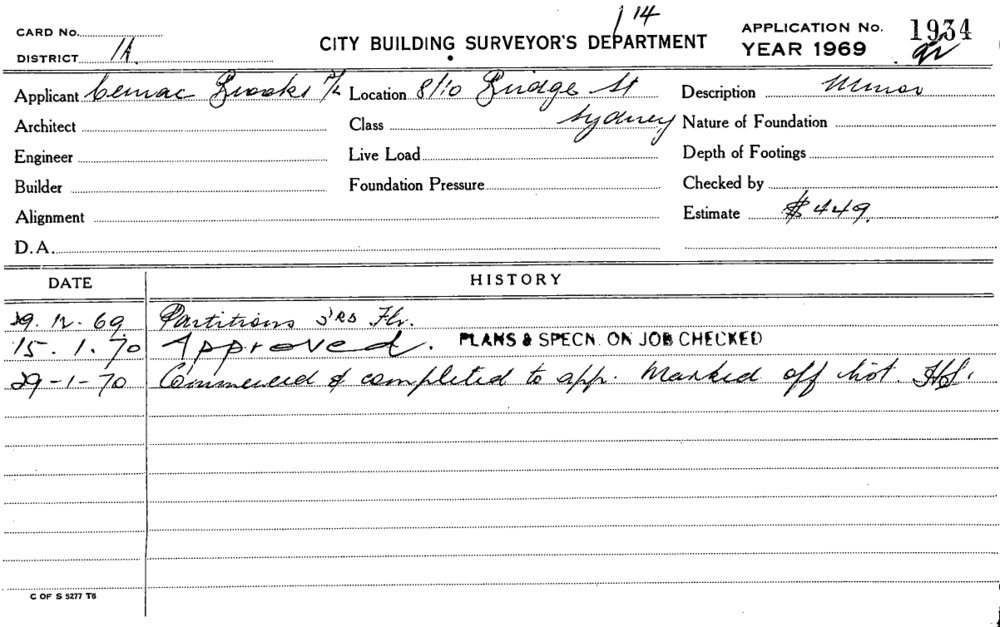 1 14
CARD No. CITY BUILDING SURVEYOR'S DEPARTMENT APPLICATION No. 1934
DISTRICT 1A. YEAR 1969
Applicant Cemac Brooks P/L Location 8/10 Bridge St Description Minor
Architect Class Sydney Nature of Foundation
Engineer Live Load Depth of Footings
Builder Foundation Pressure Checked by
Alignment Estimate $449.
D.A.
DATE HISTORY
29.12.69 Partitions 3RD Flr.
15.1.70 Approved. PLANS & SPECN. ON JOB CHECKED
29-1-70 Commenced & completed to app. Marked off hist.
C OF S 5277 T6